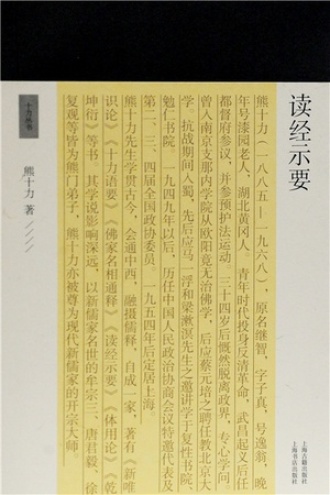 读经示要
熊十力（一八八五—一九六八），原名继智，字子真，号逸翁，晚
年号漆园老人，湖北黄冈人。青年时代投身反清革命，武昌起义后任
都督府参议，并参预护法运动。三十四岁后慨然脱离政界，专心学问，
曾入南京支那内学院从欧阳竟无治佛学，后应蔡元培之聘任教北京大
学。抗战期间入蜀，先后应马一浮和梁漱溟先生之邀讲学于复性书院、
勉仁书院。一九四九年以后，历任中国人民政治协商会议特邀代表及
第二、三、四届全国政协委员。一九五四年后定居上海。
熊十力先生学贯古今，会通中西，融摄儒释，自成一家，著有《新唯
识论》《十力语要》《佛家名相通释》《读经示要》《体用论》《乾
坤衍》等书，其学说影响深远，以新儒家名世的牟宗三、唐君毅、徐
复观等皆为熊门弟子，熊十力亦被尊为现代新儒家的开宗大师。
十力丛书
熊十力 著
上海古籍出版社
上海书店出版社